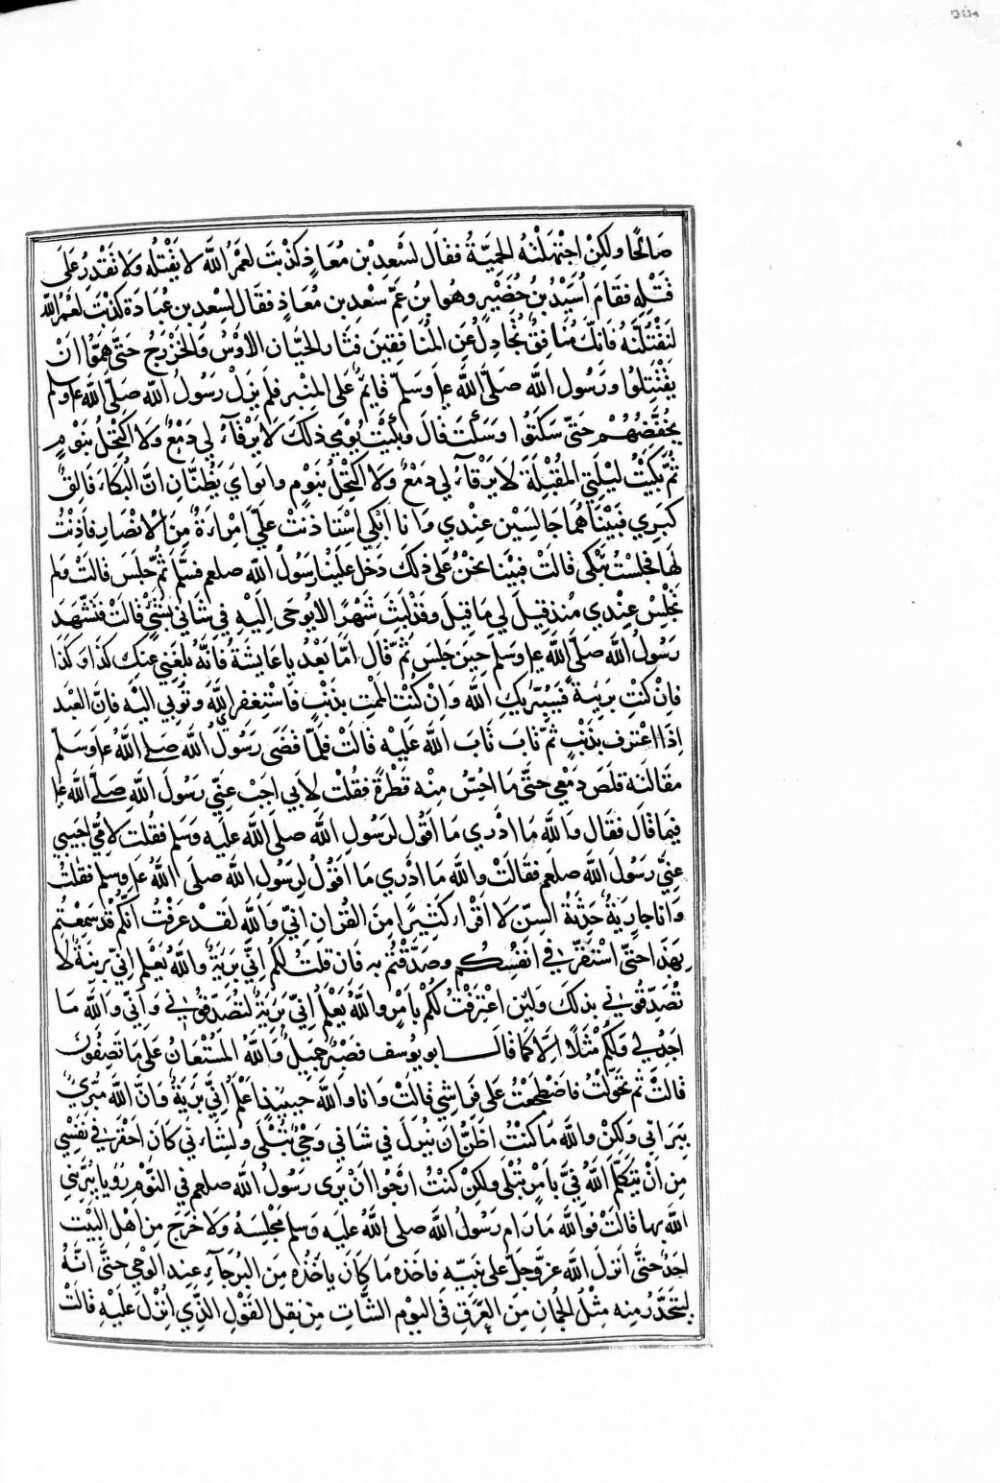 صَالِحًا وَلكِنْ اجْتَهَلَتْهُ الحَمِيَّةُ فَقَالَ لسَعْد بْن مُعَاذٍ كَذَبْتَ لَعَمْرُ اللَّه لا يَقْتُله وَلا تَقْدِرُ عَلَى
قَتْلِهِ فَقَامَ اُسَيْدُ بْنُ حُضَيْرٍ وهُوَ ابنُ عَمِّ سَعْد بن مُعَاذٍ فقَال لسعْدِ بن عُبَادَةَ كذَبْتَ لعَمْرُ اللَّه
لنَقْتُلَنَّهُ فَانَّكَ مُنَافِقٌ تُجَادِلُ عَنِ المُنَافِقِينَ فَثَارَ الحَيَّانِ الاَوْسُ وَالخَزْرَجُ حَتَّى هَمُّوا اَنْ
يَقْتَتِلُوا وَرَسُول اللَّه صَلَّى اللَّه ع‍ا وَسَلَّمَ قَايِمٌ عَلَى المِنْبَرِ فلَم يَزَلْ رَسُولُ اللَّه صَلَّى اللَّه ع‍ا وسلم
يُخَفِّضُهُمْ حَتَّى سَكَتُوا وَسَكَتَ قَالَ وَبَكَيْتُ يَوْمِي ذلكَ لَا يَرْقَأُ لي دَمْعٌ وَلَا اَكْتَحِلُ بنَوْمٍ
ثُمَّ بَكَيْتُ ليْلَتِي المُقْبِلَةَ لَا يَرْقَأُ لي دَمْعٌ وَلا اَكْتَحِلُ بنَوْمٍ وابَوَاي يَظُنَّانِ اَنَّ البُكَاءَ فَالِقٌ
كَبِدِي فَبَيْنَا هُمَا جَالِسَيْن عِنْدِي وَانَا اَبْكِي اسْتَاذَنَتْ عَلَيَّ امْرَاَةٌ مِنَ الاَنْصَارِ فَاَذِنْتُ
لهَا فجَلسَتْ تَبْكِي قَالَتْ فبَيْنَا نحْنُ عَلَى ذلكَ دَخَلَ علَيْنا رَسُولُ اللَّه صلعم فسَلَّمَ ثمَّ جلَسَ قَالتْ وَلم
يَجْلِسْ عِنْدِي مُنذ قِيلَ لي مَا قِيلَ وَقدْ لَبِثَ شَهْرًا لا يُوحَى اِلَيْهِ فِي شَانِي بشَيْءٍ قَالَتْ فَتَشَهَّدَ
رَسُولُ اللَّه صَلَّى اللَّه ع‍ا وَسَلَّمَ حِينَ جلَسَ ثمَّ قَال اَمَّا بَعْدُ يا عَايِشَةُ فَانَّهُ بلَغَنِي عَنكِ كَذَا وَكَذَا
فَاِنْ كُنتِ بَرِيئةً فَسَيُبَرِّيكِ اللَّه وَاِنْ كُنْت اَلمَمْتِ بِذَنْبٍ فَاسْتغفِرِ اللَّهَ وَتُوبي اليْهِ فاِنَّ العَبْدَ
اِذَا اعْتَرف بذَنْبٍ ثمَّ تَابَ تَابَ اللَّهُ عَليْهِ قَالَتْ فَلَمَّا قَضَى رَسُولُ اللَّه صَلَّى اللَّهُ ع‍ا وَسَلَّمَ
مقَالتَهُ قَلَصَ دَمْعِي حَتَّى مَا اُحِسُّ مِنْه قَطْرَةً فقُلْتُ لاَبي اَجِبْ عَنِّي رَسُولَ اللَّه صَلَّى اللَّه ع‍ا
فيمَا قَالَ فقَال وَاللَّه مَا ادْرِي مَا اَقُولُ لرَسُولِ اللَّه صلَّى اللَّه عليْه وَسَلم فقُلت لاُمِّي اَجِيبِي
عنِّي رَسُولَ اللَّه صلعم فقَالَتْ وَاللَّه مَا ادْرِي مَا اقُولُ لِرَسُولِ اللَّه صلَّى اللَّهُ ع‍ا وسلم فقلتُ
وَانا جَارِيَةٌ حَدِيثَةُ السِّنِّ لَا اَقْرَاُ كَثِيرًا مِنَ القُرانِ اِنِّي وَاللَّهِ لقَدْ عَرَفْتُ اَنَّكُمْ قَد سَمِعْتُم
بِهَذَا حَتَّى اسْتَقَرَّ فِي اَنفُسِكُمْ وصَدَّقْتُم بهِ فَان قلتُ لكُمْ اِنِّي بَرِيَةٌ وَاللَّهُ يَعْلَمُ اِنِّي بَرِيئَةٌ لَا
تُصَدِّقُونِي بِذلكَ وَلَئِن اعْتَرَفْتُ لكُمْ بِاَمْرٍ وَاللَّهُ يَعْلَمُ اِنِّي بَرِيَةٌ لتُصَدِّقُونِي وَاِنِّي وَاللَّه مَا
اَجِدُ لِي وَلكُمْ مثَلًا اِلّا كَمَا قَالَ ابو يُوسف فَصَبْرٌ جَمِيلٌ وَاللَّهُ المُسْتَعَانُ عَلَى مَا تَصِفُون
قَالَتْ ثم تَحَوَّلْتُ فَاضْطَجَعْتُ عَلَى فرَاشِي قَالَتْ وَانا وَاللَّه حِينَئِذٍ اَعْلَمُ اَنِّي بَرِيَةٌ وَانَّ اللَّهَ مُبَرِّيَّ
بِبَرَاءَتِي وَلكِنْ واللَّه مَا كُنْتُ اَظُنُّ اَن يُنْزَلَ فِي شَانِي وَحْيٌ يُتْلَى وَلَشَانِي كَانَ اَحْقَرَ فِي نَفْسِي
مِن اَنْ يَتَكَلَّمَ اللَّهُ فِيَّ بِاَمْرٍ يُتْلَى وَلكِنْ كُنْتُ اَرْجُوا اَنْ يَرَى رَسُولُ اللَّه صلعم فِي النَّوْمِ رُوْيَا يُبَرِّيُنِي
اللَّه بها قَالَتْ فوَاللَّه مَا رَامَ رَسُولُ اللَّه صلى اللَّهُ عليْه وَسَلم مَجْلِسَهُ وَلَا خَرَجَ مِن اَهْل البَيْت
اَحَدٌ حَتَّى اَنْزلَ اللَّه عزَّ وَجلَّ علَى نبيِّه فاَخذهُ مَا كَانَ يَاخُذهُ مِنَ البُرَحَآءِ عِنْدَ الوَحْي حَتَّى اَنَّهُ
لَيَتَحَدَّرُ مِنه مِثْلُ الجُمانِ مِنَ العَرَقِ فَي اليَوْم الشَّاتِ مِنْ ثِقَلِ القَوْلِ الَّذِي اُنْزِلَ عَلَيْهِ قَالَتْ